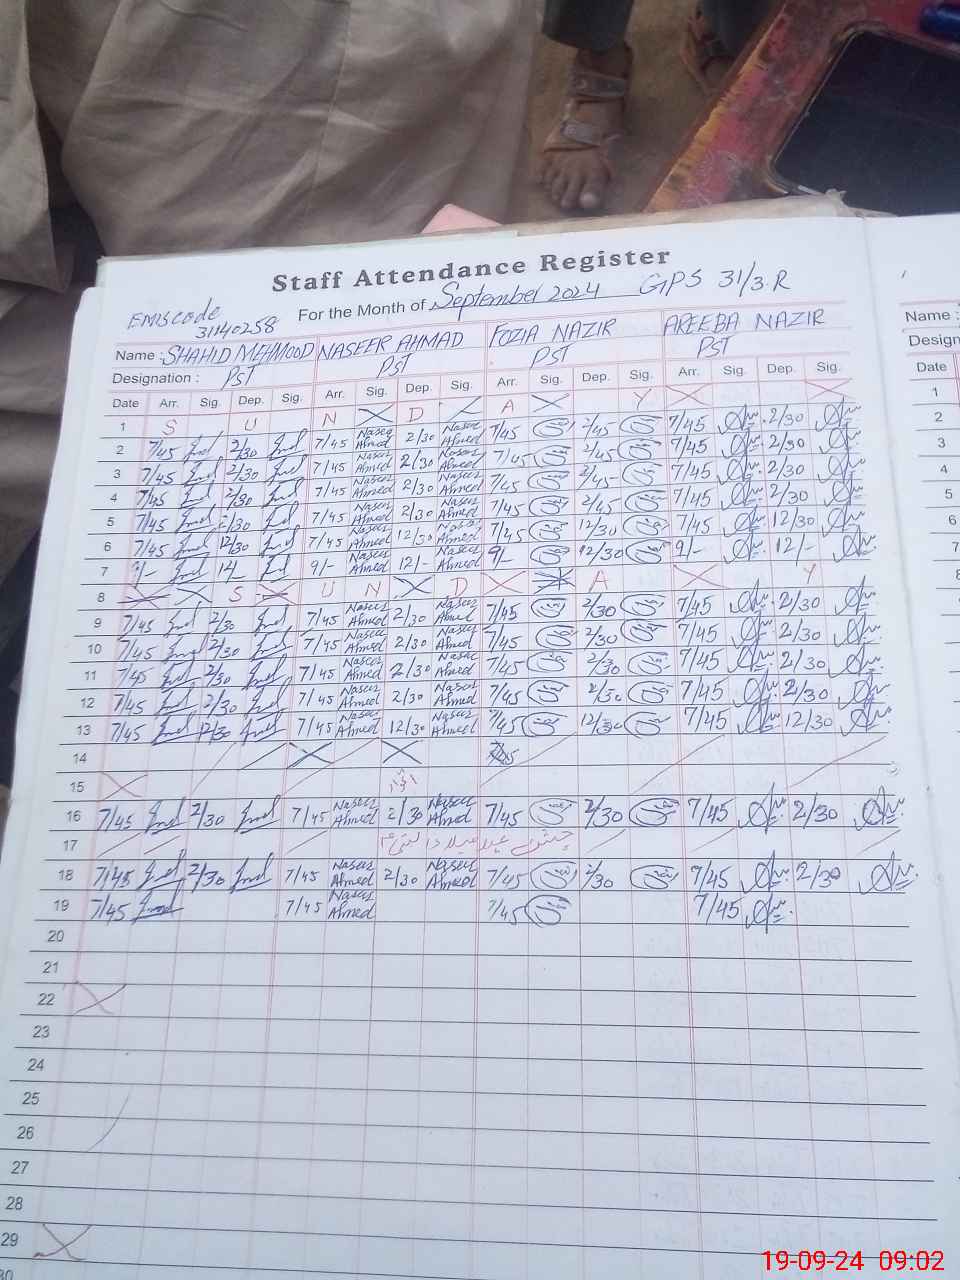 Staff Attendance Register
For the Month of September 2024 GPS 31/3.R
EMIScode 31140258
Name : SHAHID MEHMOOD NASEER AHMAD FOZIA NAZIR AREEBA NAZIR Name :
Designation : PST PST PST PST Design
Date Arr. Sig. Dep. Sig. Arr. Sig. Dep. Sig. Arr. Sig. Dep. Sig. Arr. Sig. Dep. Sig. Date
1 S U N D A Y 1
2 7/45 2/30 7/45 Naseer Ahmed 2/30 Naseer Ahmed 7/45 2/45 7/45 2/30 2
3 7/45 2/30 7/45 Naseer Ahmed 2/30 Naseer Ahmed 7/45 2/45 7/45 2/30 3
4 7/45 2/30 7/45 Naseer Ahmed 2/30 Naseer Ahmed 7/45 2/45 7/45 2/30 4
5 7/45 2/30 7/45 Naseer Ahmed 2/30 Naseer Ahmed 7/45 2/45 7/45 2/30 5
6 7/45 12/30 7/45 Naseer Ahmed 12/30 Naseer Ahmed 7/45 12/30 7/45 12/30 6
7 9/- 12/- 9/- Naseer Ahmed 12/- Naseer Ahmed 9/- 12/30 9/- 12/- 7
8 S U N D A Y 8
9 7/45 2/30 7/45 Naseer Ahmed 2/30 Naseer Ahmed 7/45 2/30 7/45 2/30 9
10 7/45 2/30 7/45 Naseer Ahmed 2/30 Naseer Ahmed 7/45 2/30 7/45 2/30 10
11 7/45 2/30 7/45 Naseer Ahmed 2/30 Naseer Ahmed 7/45 2/30 7/45 2/30 11
12 7/45 2/30 7/45 Naseer Ahmed 2/30 Naseer Ahmed 7/45 2/30 7/45 2/30 12
13 7/45 12/30 7/45 Naseer Ahmed 12/30 Naseer Ahmed 7/45 12/30 7/45 12/30 13
14
15 اتوار
16 7/45 2/30 7/45 Naseer Ahmed 2/30 Naseer Ahmed 7/45 2/30 7/45 2/30
17 جشن عید میلاد النبی
18 7/45 2/30 7/45 Naseer Ahmed 2/30 Naseer Ahmed 7/45 2/30 7/45 2/30
19 7/45 7/45 Naseer Ahmed 7/45 7/45
20
21
22
23
24
25
26
27
28
29
30
19-09-24 09:02